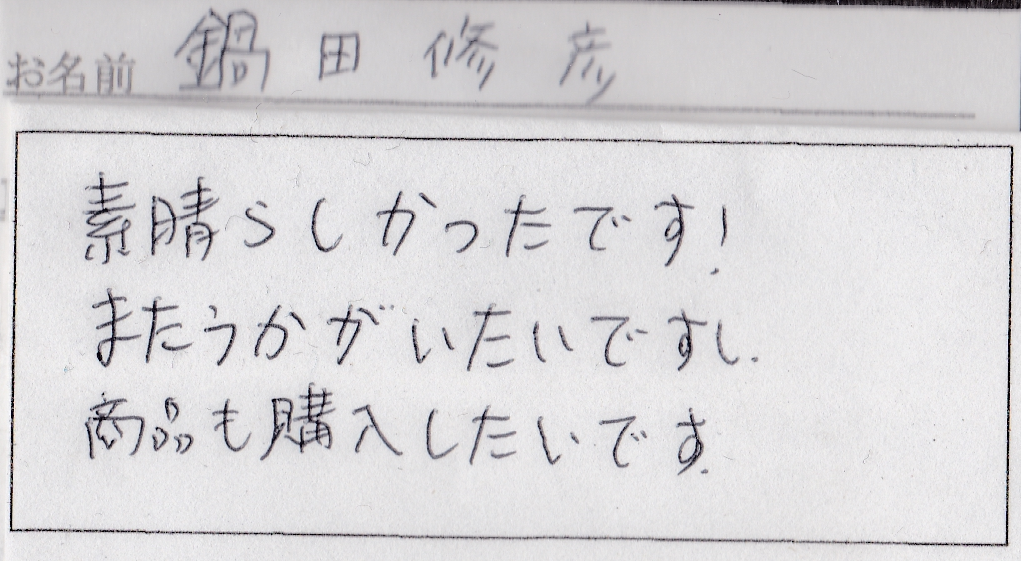 お名前 鍋田修彦
素晴らしかったです!
またうかがいたいですし.
商品も購入したいです.